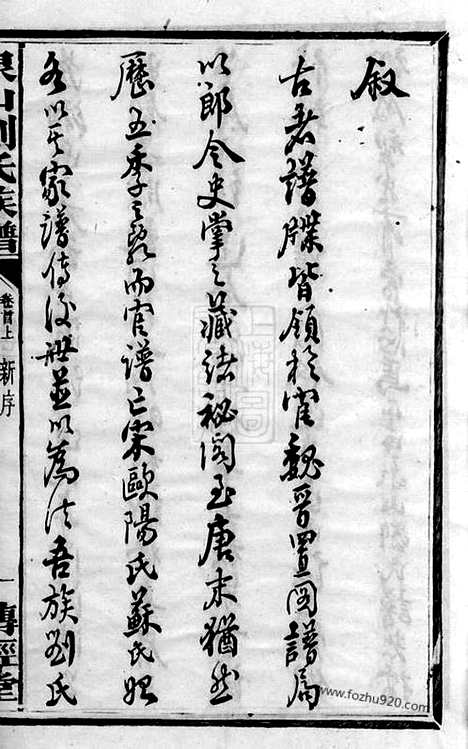 叙
古者譜牒皆領於官魏晉置圖譜局
以郎令史掌之藏諸祕閣至唐末猶然
歷五季之亂而官譜亡宋歐陽氏蘇氏始
各以其家譜傳後世並以為法吾族劉氏
劉氏族譜
卷首上 新序
一 傳經堂
www.fozhu920.com